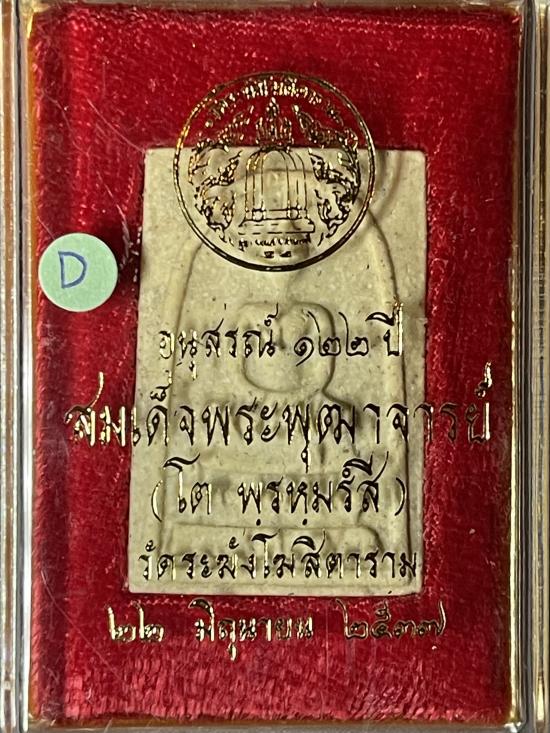 D
อนุสรณ์ ๑๒๒ ปี
สมเด็จพระพุฒาจารย์
(โต พฺรหฺมรํสี)
วัดระฆังโฆสิตาราม
๒๒ มิถุนายน ๒๕๓๗